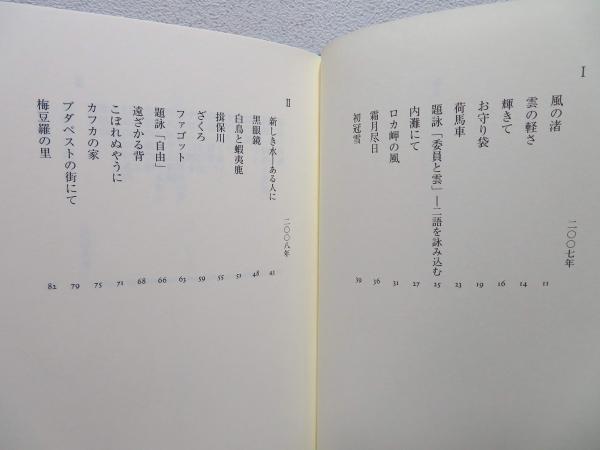 I
二〇〇七年
風の渚 11
雲の軽さ 14
輝きて 16
お守り袋 19
荷馬車 23
題詠「委員と雲」—二語を詠み込む 25
内灘にて 27
ロカ岬の風 31
霜月尽日 36
初冠雪 39
II
二〇〇八年
新しき水—ある人に 43
黒眼鏡 48
白鳥と蝦夷鹿 51
揖保川 55
ざくろ 59
ファゴット 63
題詠「自由」 66
遠ざかる背 68
こぼれぬやうに 71
カフカの家 75
ブダペストの街にて 79
梅豆羅の里 82